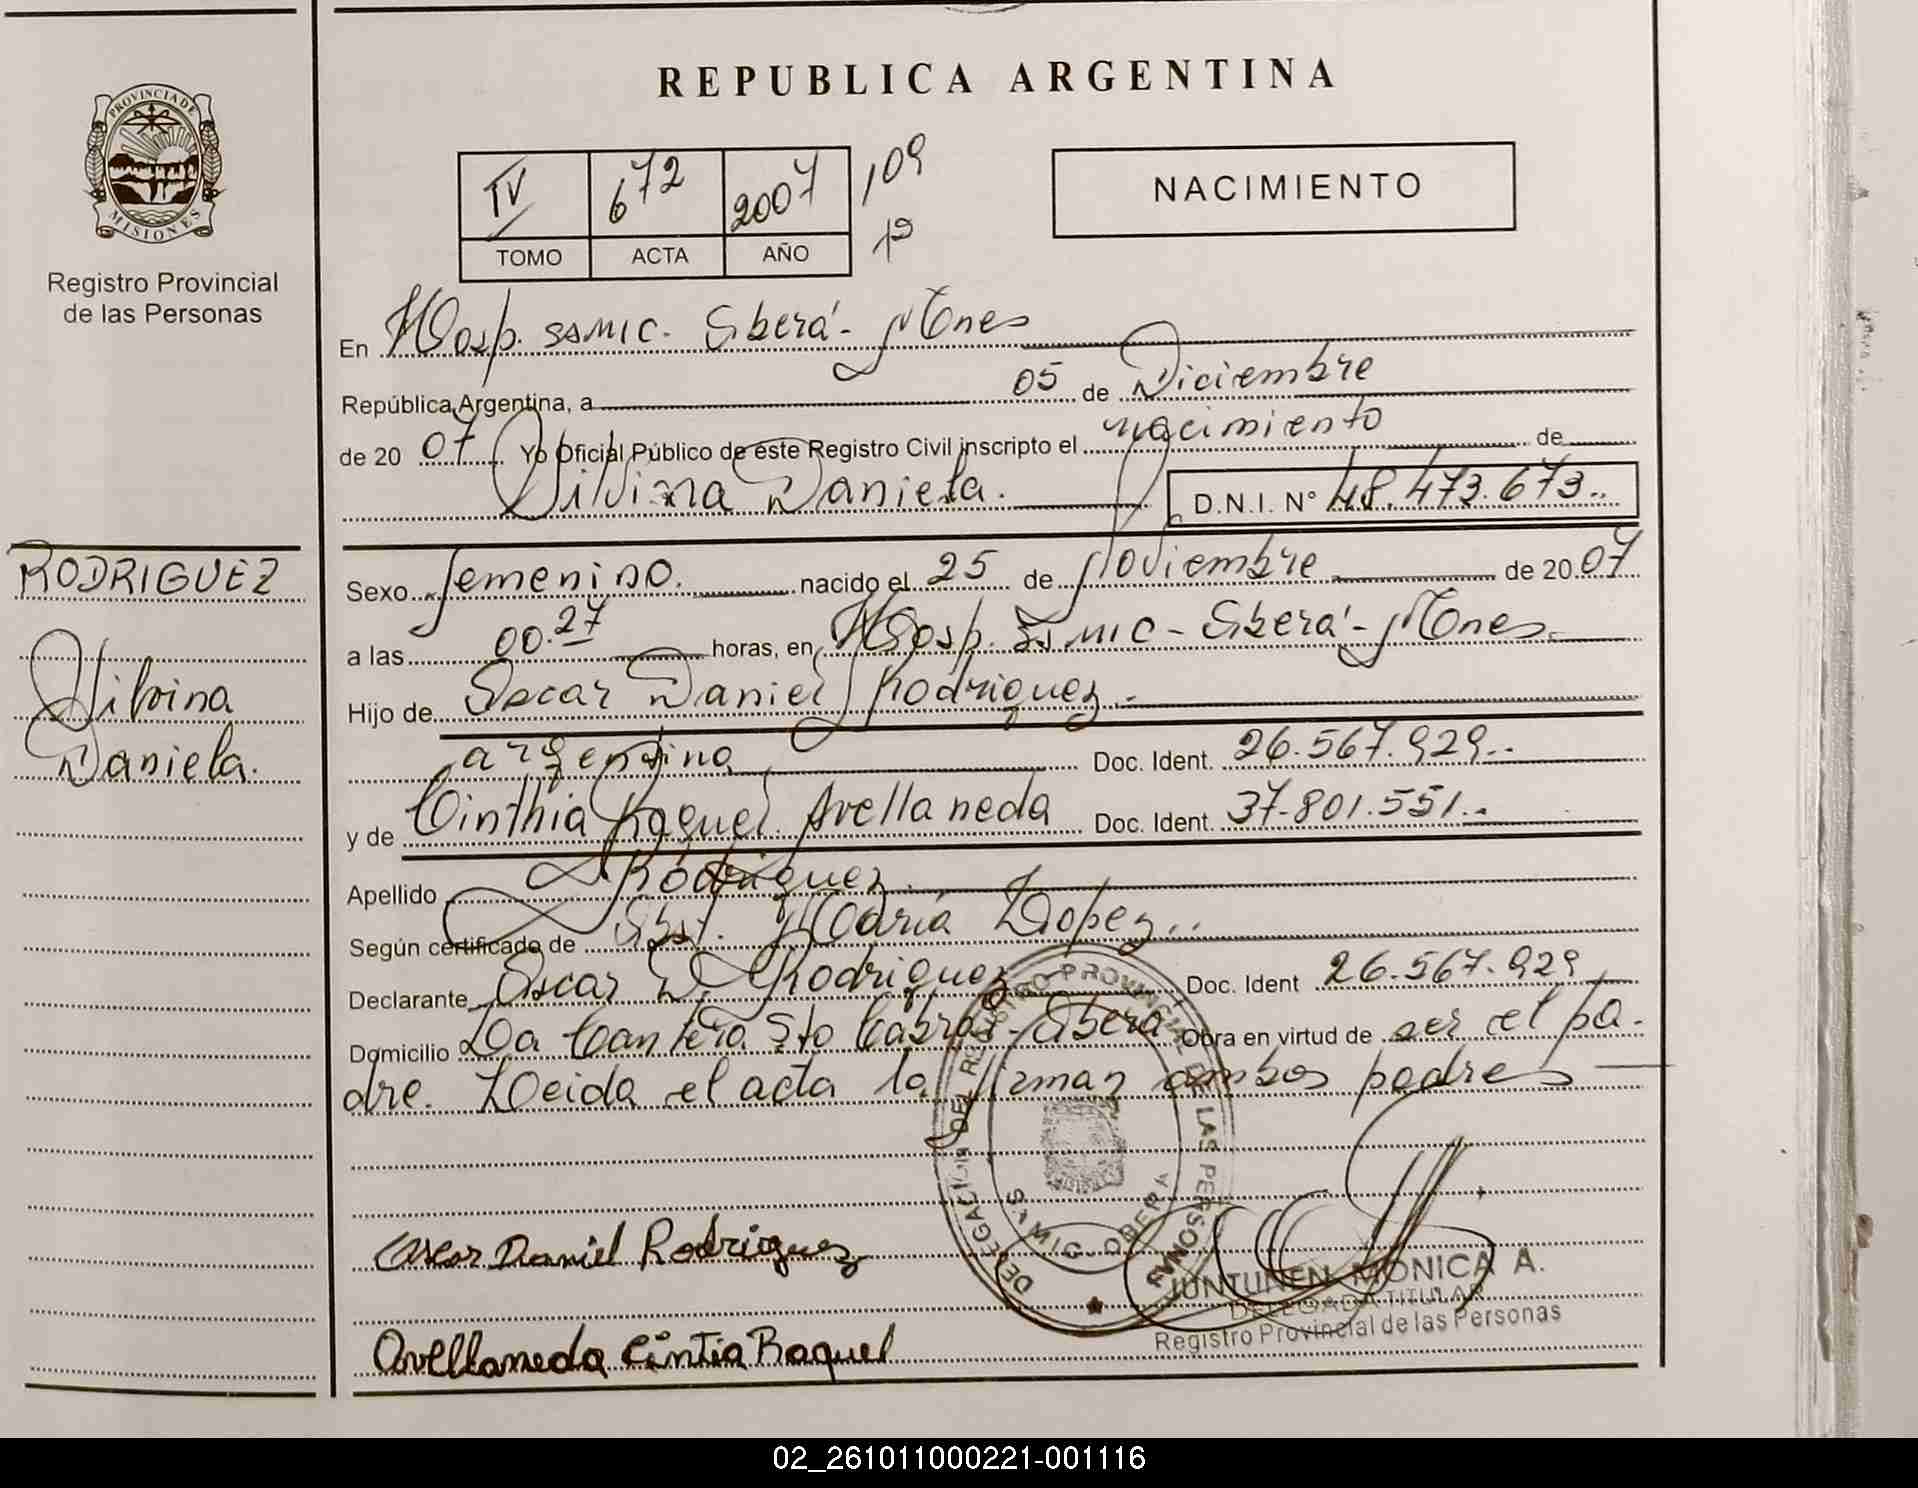 REPUBLICA ARGENTINA
PROVINCIA DE MISIONES
Registro Provincial
de las Personas
IV 672 2007 109
TOMO ACTA AÑO
NACIMIENTO
En Hosp. SAMIC. Oberá - Mnes
República Argentina, a 05 de Diciembre
de 2007 Yo Oficial Público de este Registro Civil inscripto el nacimiento de
Silvina Daniela. D.N.I. N° 48.473.673..
RODRIGUEZ
Silvina
Daniela.
Sexo femenino. nacido el 25 de Noviembre de 2007
a las 00.27 horas, en Hosp. SAMIC - Oberá - Mnes.
Hijo de Oscar Daniel Rodriguez.-
argentino Doc. Ident. 26.567.929..
y de Cinthia Raquel Avellaneda Doc. Ident. 37.801.551..
Apellido Rodriguez.
Según certificado de Obst. María Lopez..
Declarante Oscar D. Rodriguez Doc. Ident 26.567.929
Domicilio La Cantera Sto Cabral - Oberá Obra en virtud de ser el pa-
dre. Leida el acta la firman ambos padres
DELEGACION DEL REGISTRO PROVINCIAL DE LAS PERSONAS
SAMIC - OBERA
Oscar Daniel Rodriguez
JUNTUNEN MONICA A.
DELEGADA TITULAR
Registro Provincial de las Personas
Avellaneda Cintia Raquel
02_261011000221-001116